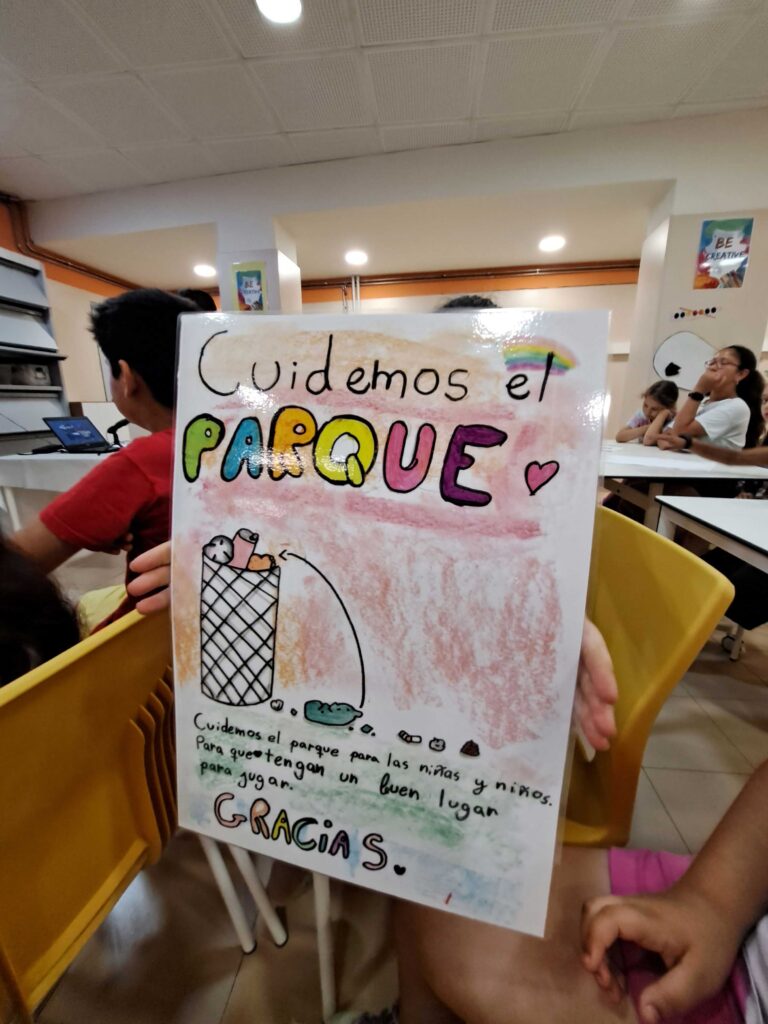 BE CREATIVE
Cuidemos el
PARQUE
Cuidemos el parque para las niñas y niños.
Para que tengan un buen lugar
para jugar.
GRACIAS.